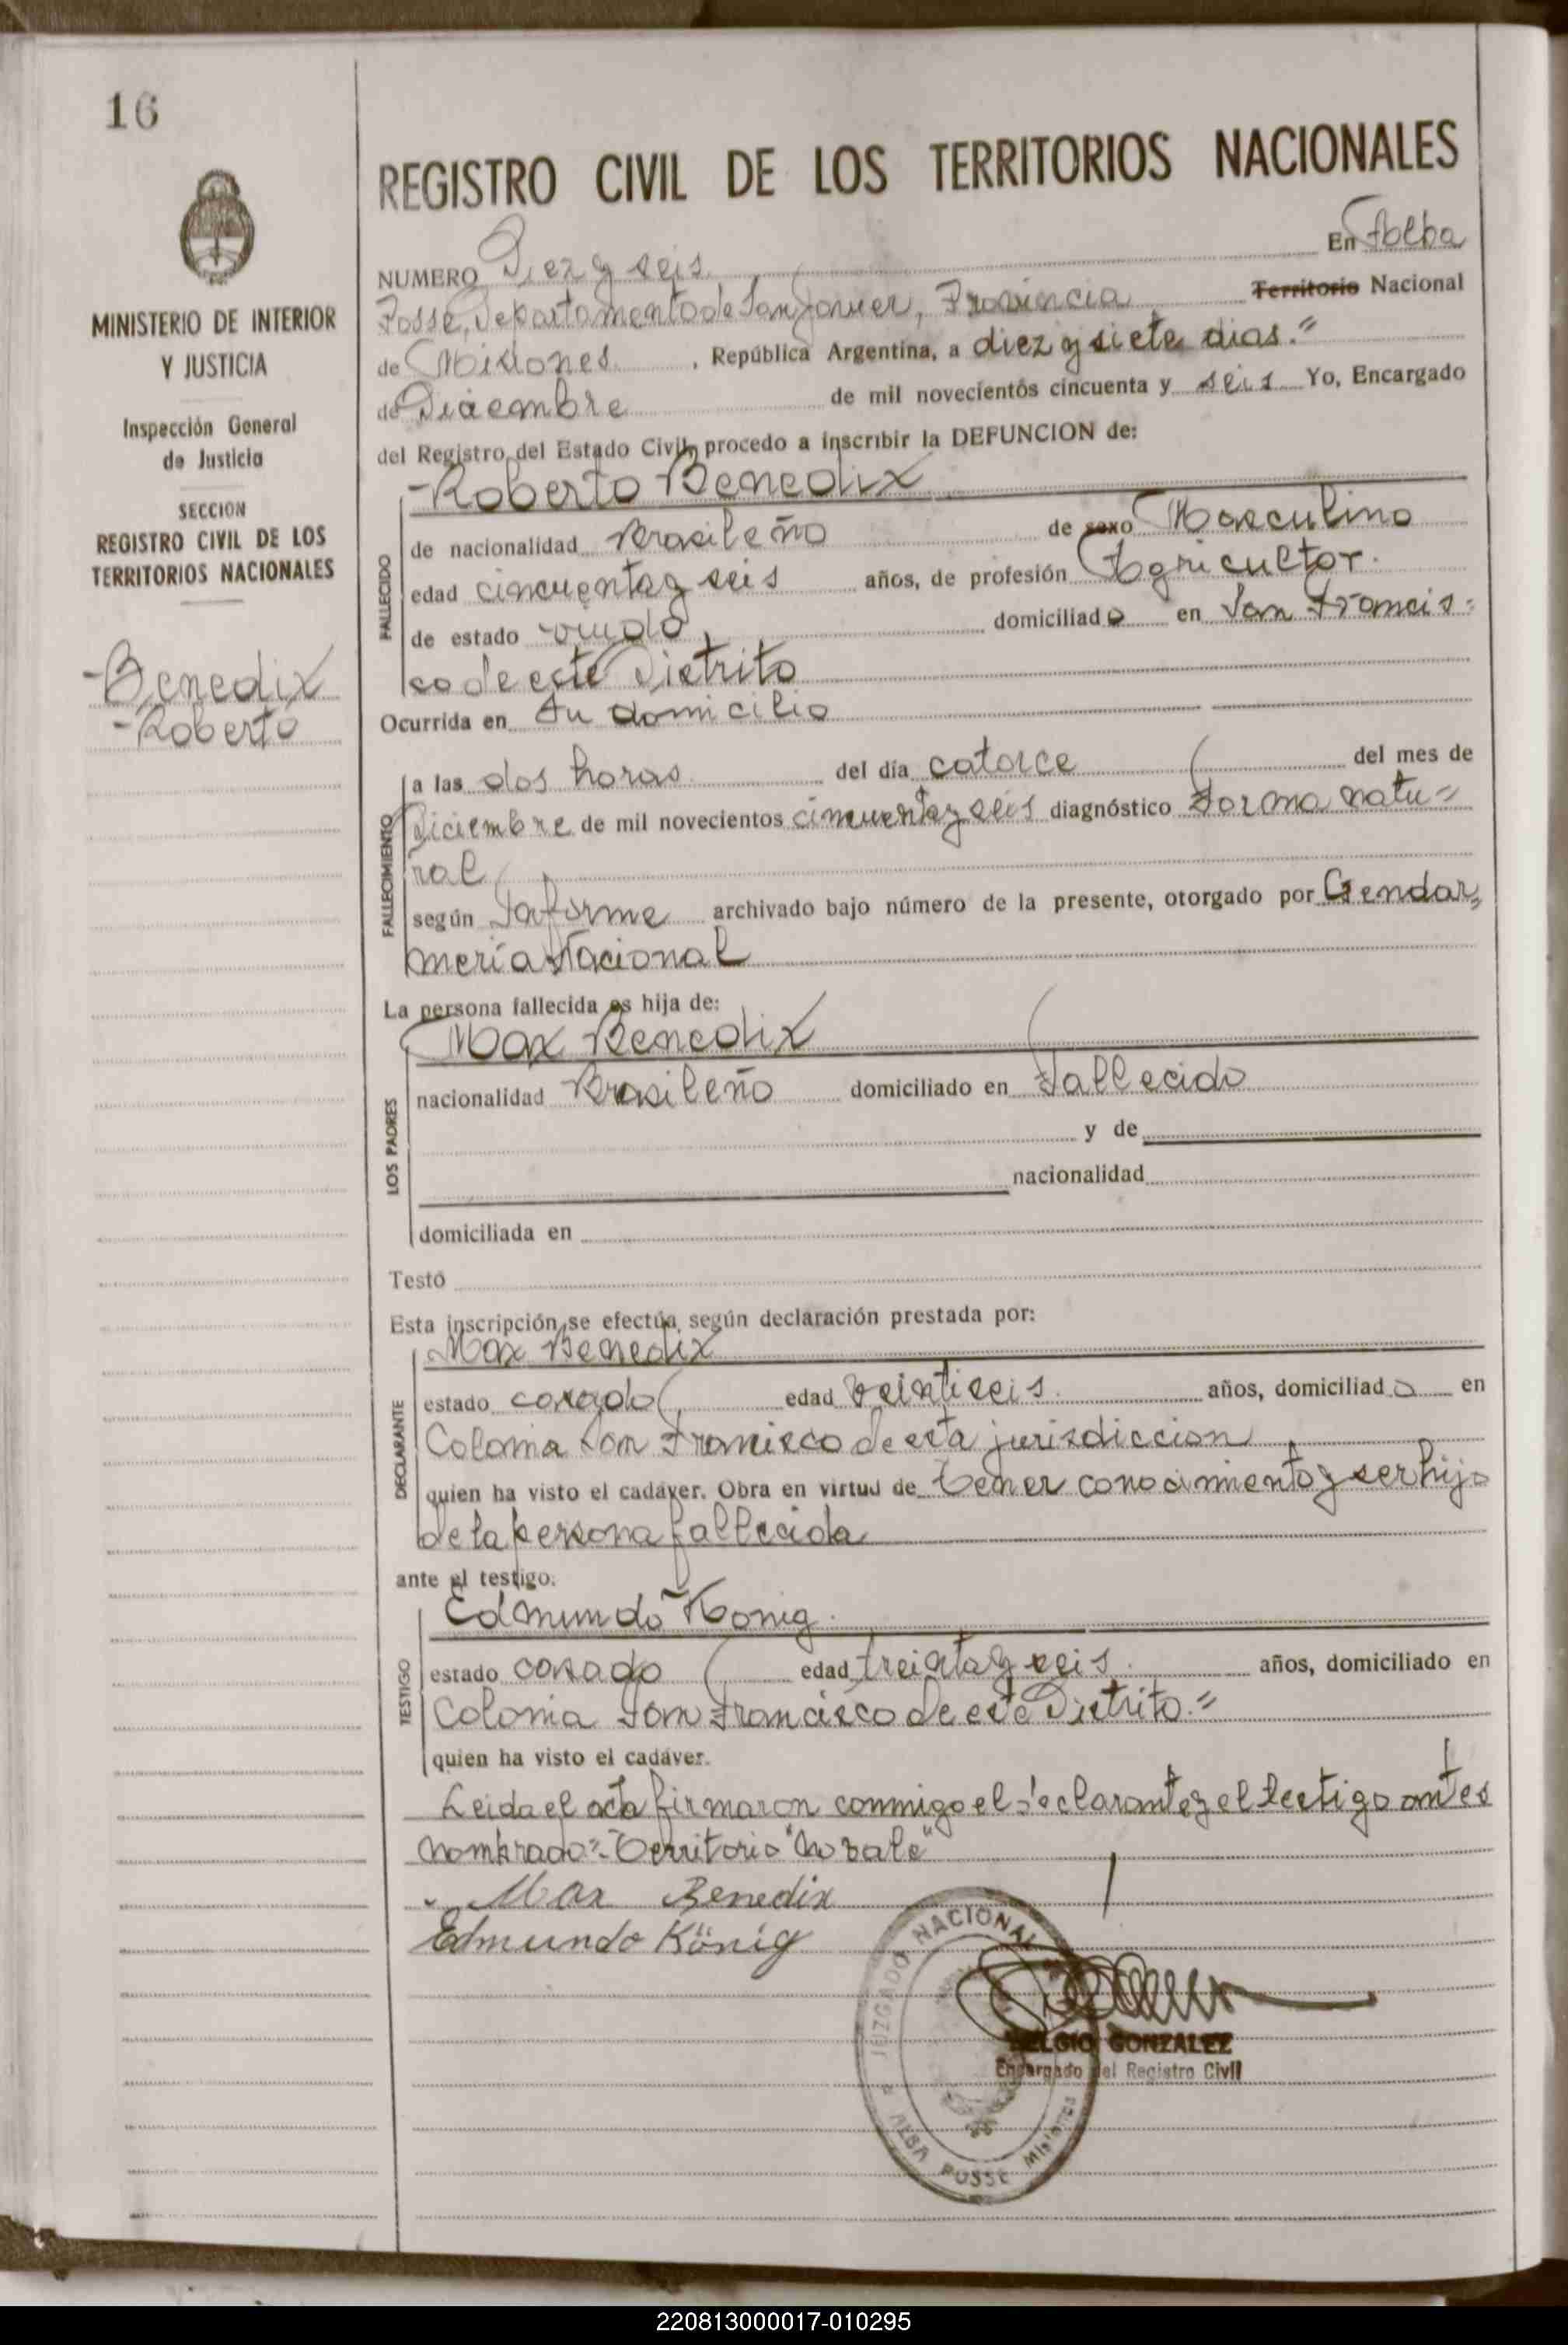 16
MINISTERIO DE INTERIOR
Y JUSTICIA
Inspección General
de Justicia
SECCION
REGISTRO CIVIL DE LOS
TERRITORIOS NACIONALES
Benedix
Roberto
REGISTRO CIVIL DE LOS TERRITORIOS NACIONALES
NUMERO Diez y seis En Alba
Posse, Departamento de San Javier, Provincia Territorio Nacional
de Misiones, República Argentina, a diez y siete dias.=
de Diciembre de mil novecientos cincuenta y seis Yo, Encargado
del Registro del Estado Civil, procedo a inscribir la DEFUNCION de:
FALLECIDO
Roberto Benedix
de nacionalidad Brasileño de sexo Masculino
edad cincuenta y seis años, de profesión Agricultor.
de estado viudo domiciliado en San Francis=
co de este Distrito
Ocurrida en Su domicilio
FALLECIMIENTO
a las dos horas del día catorce del mes de
Diciembre de mil novecientos cincuenta y seis diagnóstico Forma natu=
ral
según Informe archivado bajo número de la presente, otorgado por Gendar=
mería Nacional
La persona fallecida es hija de:
LOS PADRES
Max Benedix
nacionalidad Brasileño domiciliado en Fallecido
y de
nacionalidad
domiciliada en
Testó
Esta inscripción se efectúa, según declaración prestada por:
DECLARANTE
Max Benedix
estado casado edad veintiseis. años, domiciliado en
Colonia San Francisco de esta jurisdiccion
quien ha visto el cadáver. Obra en virtud de tener conocimiento y ser hijo
de la persona fallecida
ante el testigo:
TESTIGO
Edmundo Konig.
estado casado edad treinta y seis. años, domiciliado en
Colonia San Francisco de este Distrito.=
quien ha visto el cadáver.
Leida el acta firmaron conmigo el declarante y el testigo antes
nombrado=. Territorio "No vale"
Max Benedix
Edmundo König
JUZGADO NACIONAL
ALBA POSSE Misiones
BELGIO GONZALEZ
Encargado del Registro Civil
220813000017-010295